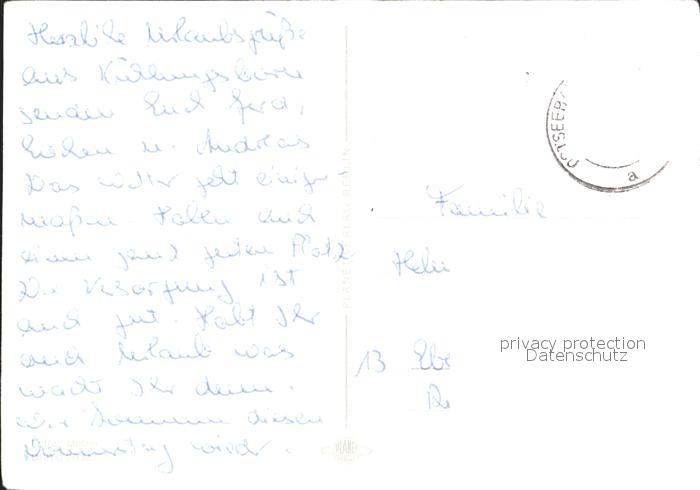 Herzliche Urlaubsgrüße
aus Kühlungsborn
senden Euch Gerd,
u. Andreas
Das Wetter geht einiger-
maßen. Haben auch
einen ganz guten Platz.
Die Versorgung ist
auch gut. Habt Ihr
auch Urlaub was
macht Ihr denn.
Wir kommen diesen
Donnerstag wieder.
PLANET-VERLAG BERLIN
PLANET
OSTSEEB
a
Familie
13
privacy protection
Datenschutz